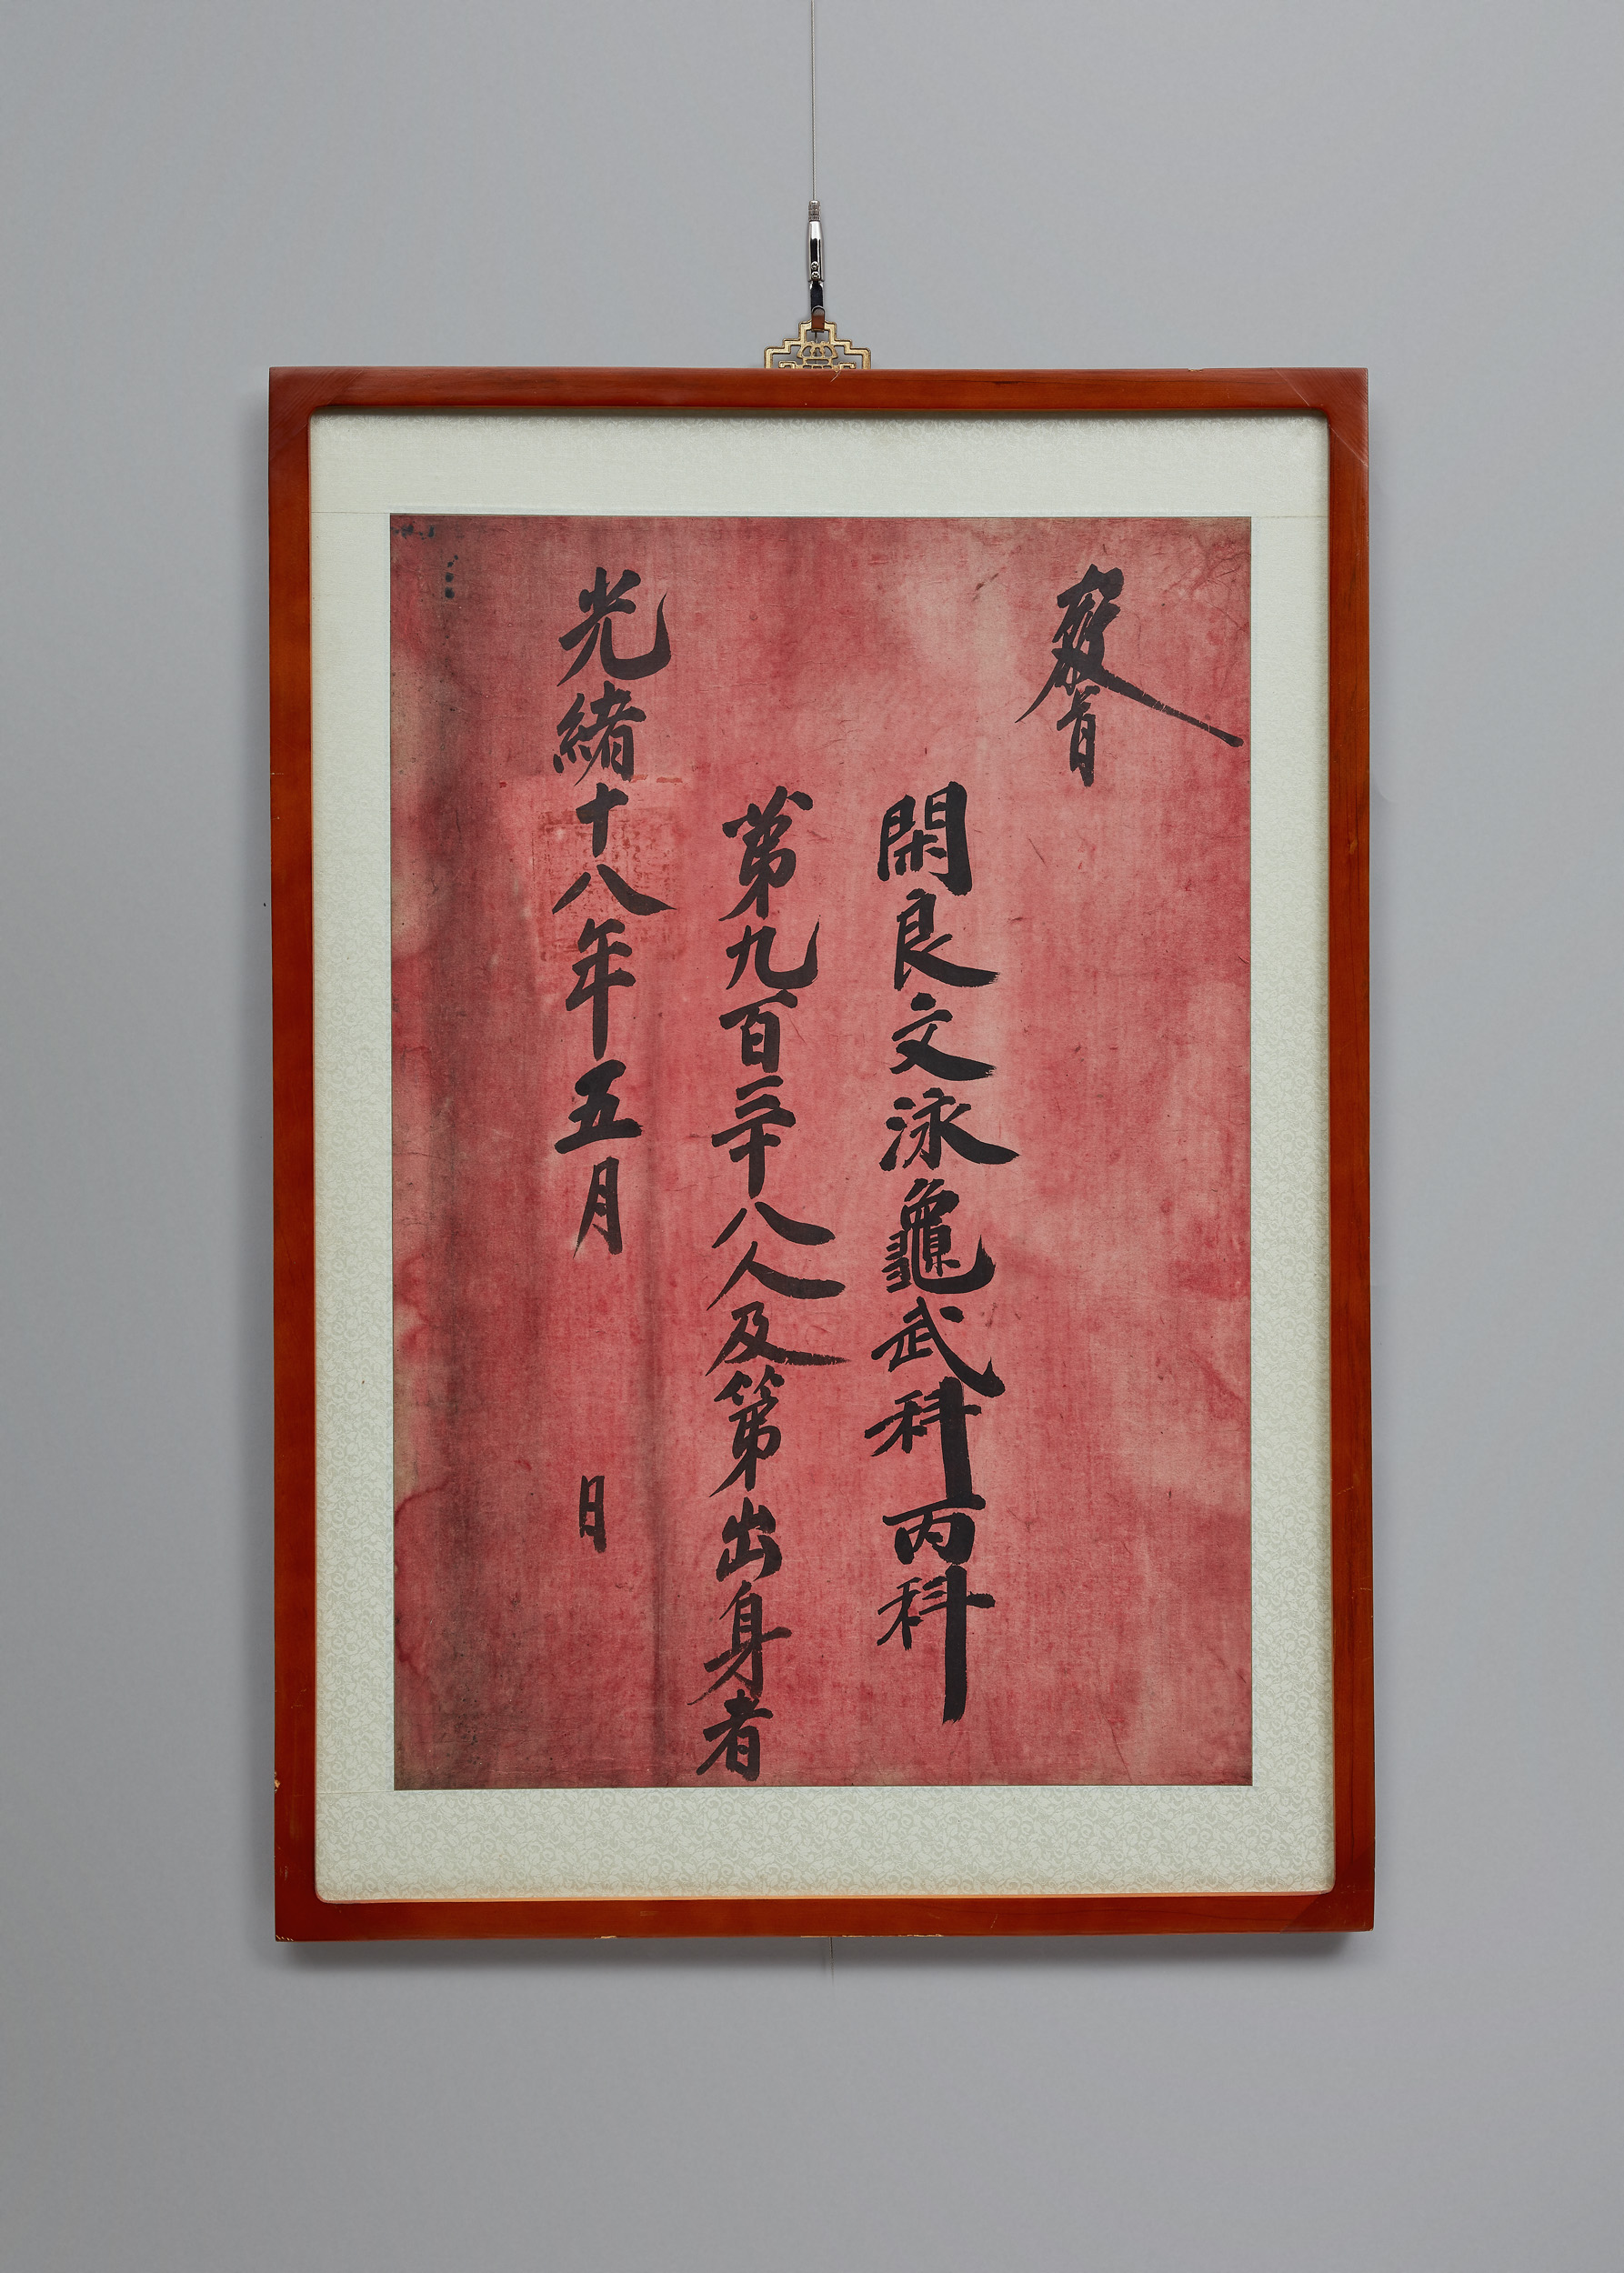 教旨
閑良文泳龜武科丙科
第九百二十八人及第出身者
光緖十八年五月 日